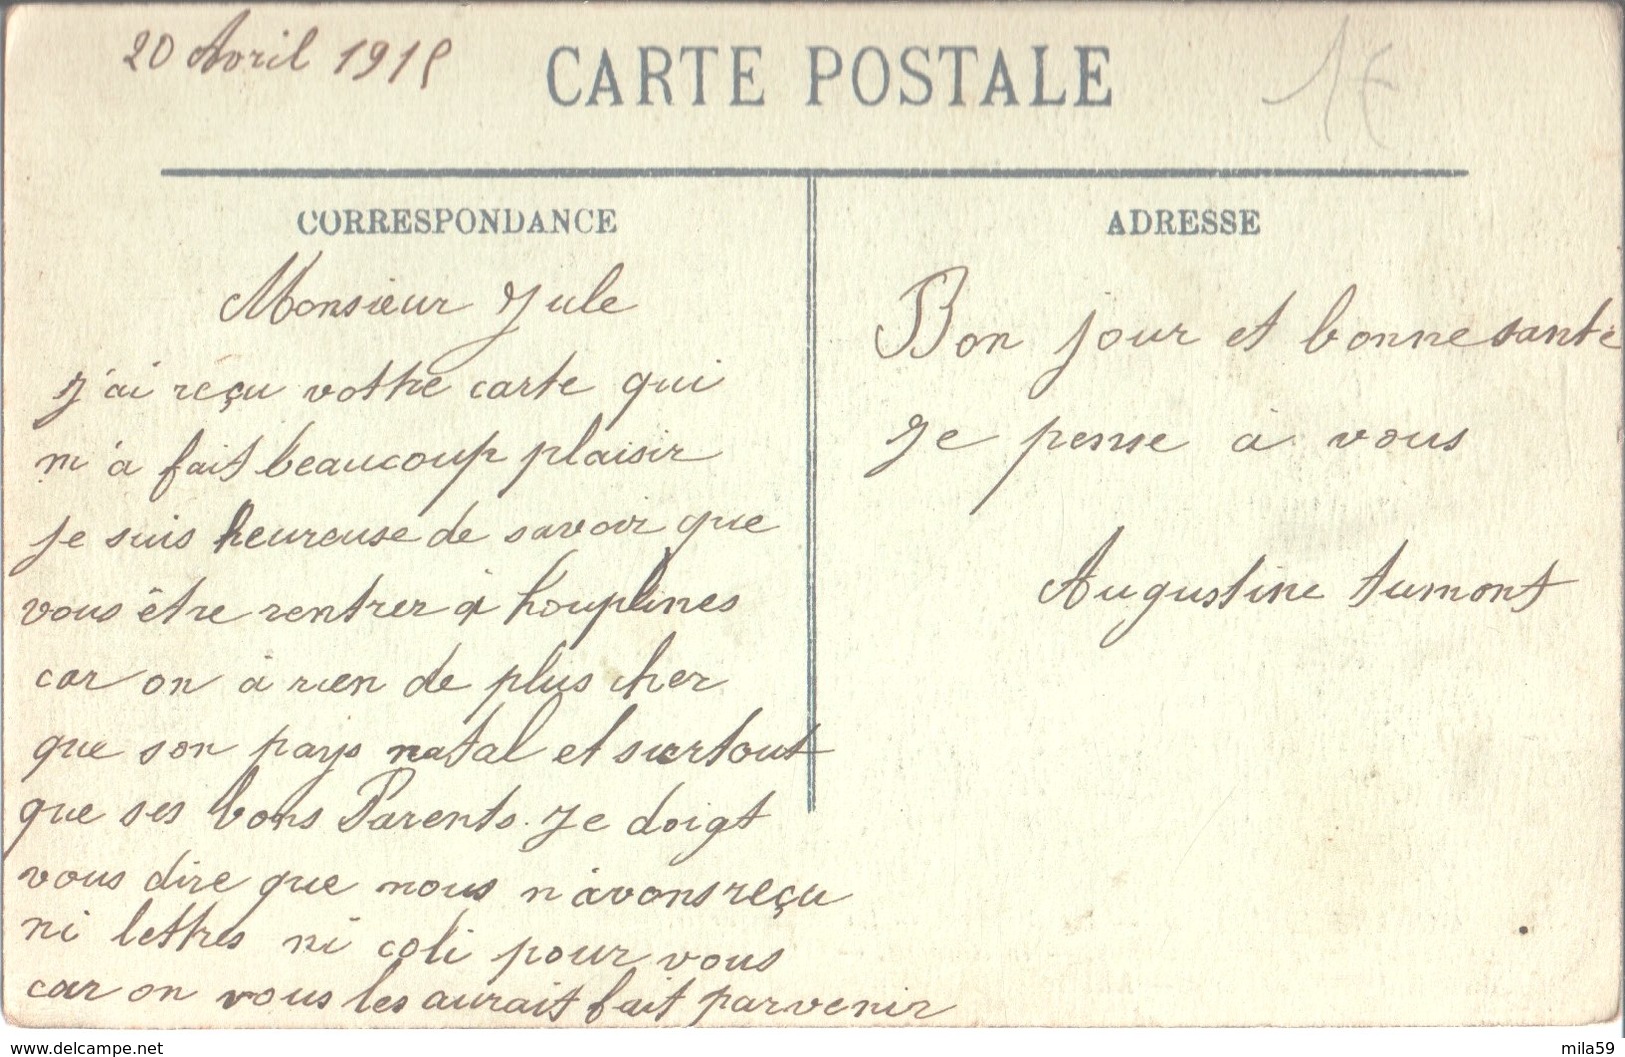 20 Avril 1915
CARTE POSTALE
1€
CORRESPONDANCE
Monsieur Jule
J'ai reçu vottre carte qui
m'a fait beaucoup plaisir
je suis heureuse de savoir que
vous être rentrer à houplines
car on à rien de plus cher
que son pays natal et surtout
que ses bons Parents. Je doigt
vous dire que nous n'avons reçu
ni lettres ni coli pour vous
car on vous les aurait fait parvenir
ADRESSE
Bon jour et bonne santé
Je pense à vous
Augustine Aumont
www.delcampe.net
mila59